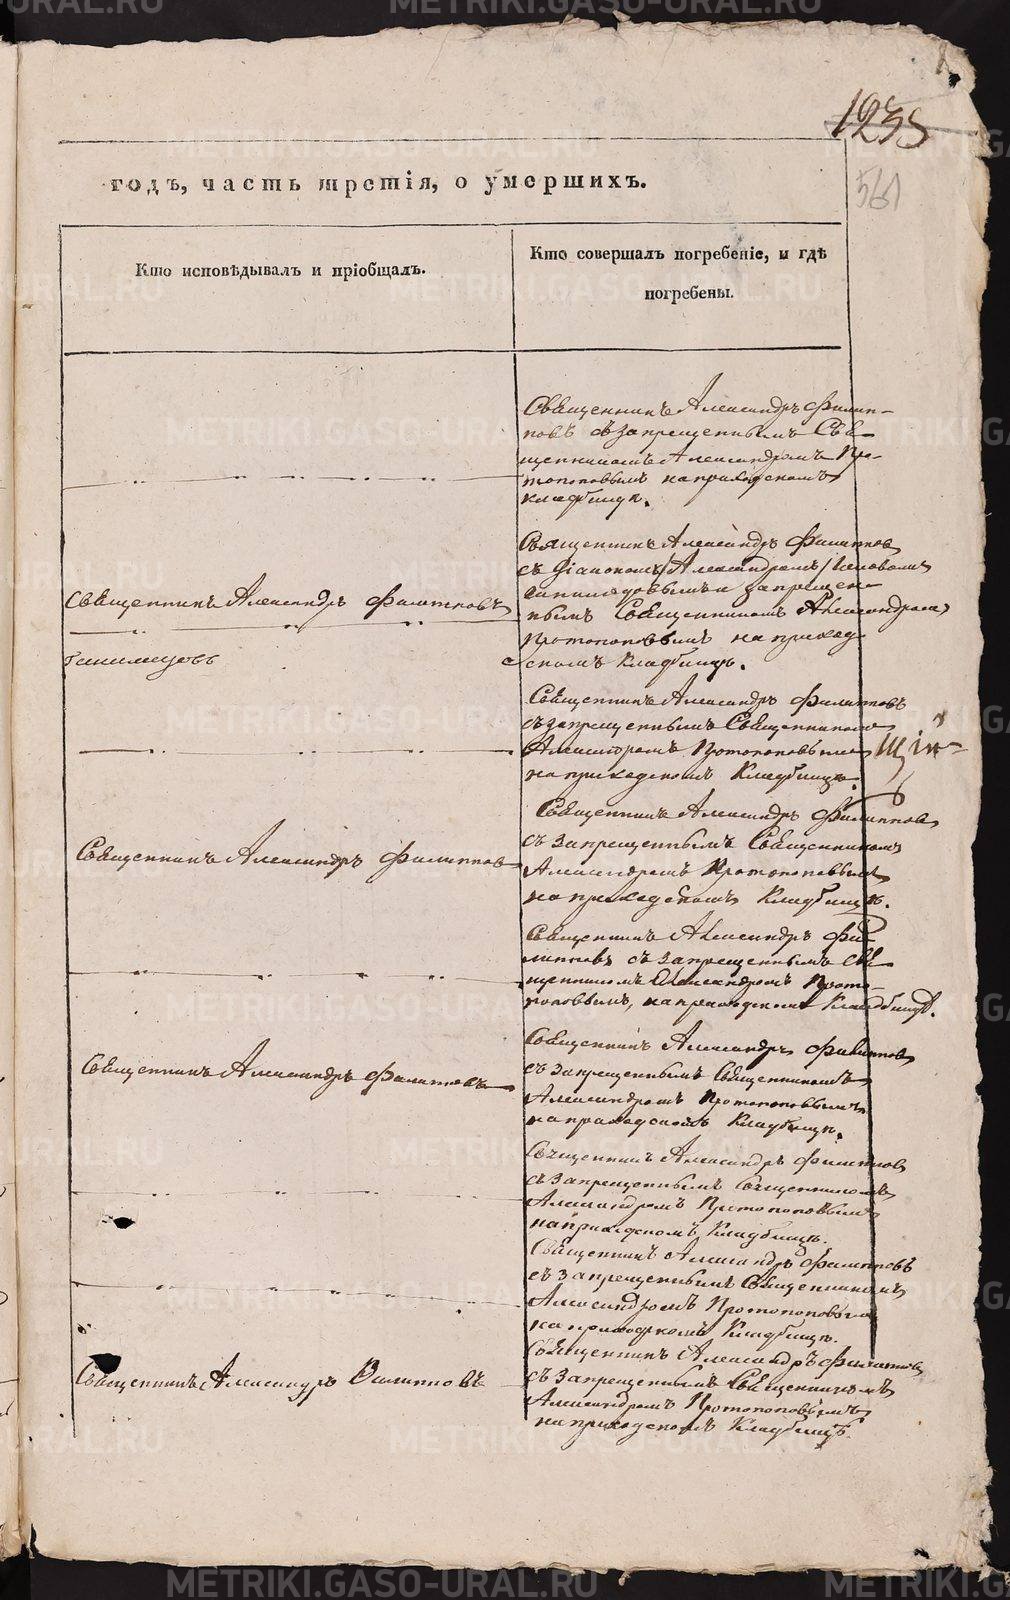 1235
561
годъ, часть третія, о умершихъ.
Кто исповѣдывалъ и пріобщалъ.
Кто совершалъ погребеніе, и гдѣ
погребены.
Священникъ Александръ Филип-
повъ съ запрещеннымъ Свя-
щенникомъ Александромъ Про-
топоповымъ на приходскомъ
кладбищѣ.
Священникъ Александръ Филипповъ
Священникъ Александръ Филиппов
съ Діакономъ Александромъ
и запрещен-
нымъ Священникомъ Александромъ
Протопоповымъ на приход-
скомъ Кладбищѣ.
Священникъ Александръ Филипповъ
съ запрещеннымъ Священникомъ
Александромъ Протопоповымъ
на приходскомъ Кладбищѣ.
Священникъ Александръ Филиппов
Священникъ Александръ Филиппов
съ запрещеннымъ Священникомъ
Александромъ Протопоповымъ
на приходскомъ Кладбищѣ.
Священникъ Александръ Фи-
липповъ съ запрещеннымъ Свя-
щенникомъ Александромъ Прото-
поповымъ, на приходскомъ Кладбищѣ.
Священникъ Александръ Филипповъ
Священникъ Александръ Филиппов
съ запрещеннымъ Священникомъ
Александромъ Протопоповымъ
на приходскомъ Кладбищѣ.
Священникъ Александръ Филиппов
съ запрещеннымъ Священникомъ
Александромъ Протопоповымъ
на приходскомъ Кладбищѣ.
Священникъ Александръ Филипповъ
съ запрещеннымъ Священникомъ
Александромъ Протопоповымъ
на приходскомъ Кладбищѣ.
Священникъ Александръ Филипповъ
Священникъ Александръ Филиппов
съ запрещеннымъ Священникомъ
Александромъ Протопоповымъ
на приходскомъ Кладбищѣ.
METRIKI.GASO-URAL.RU